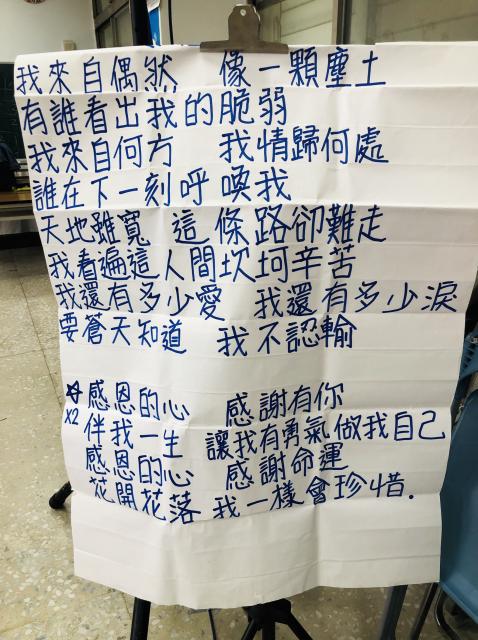 我來自偶然 像一顆塵土
有誰看出我的脆弱
我來自何方 我情歸何處
誰在下一刻呼喚我
天地雖寬 這條路卻難走
我看遍這人間坎坷辛苦
我還有多少愛 我還有多少淚
要蒼天知道 我不認輸
☆感恩的心 感謝有你
X2 伴我一生 讓我有勇氣做我自己
感恩的心 感謝命運
花開花落 我一樣會珍惜.